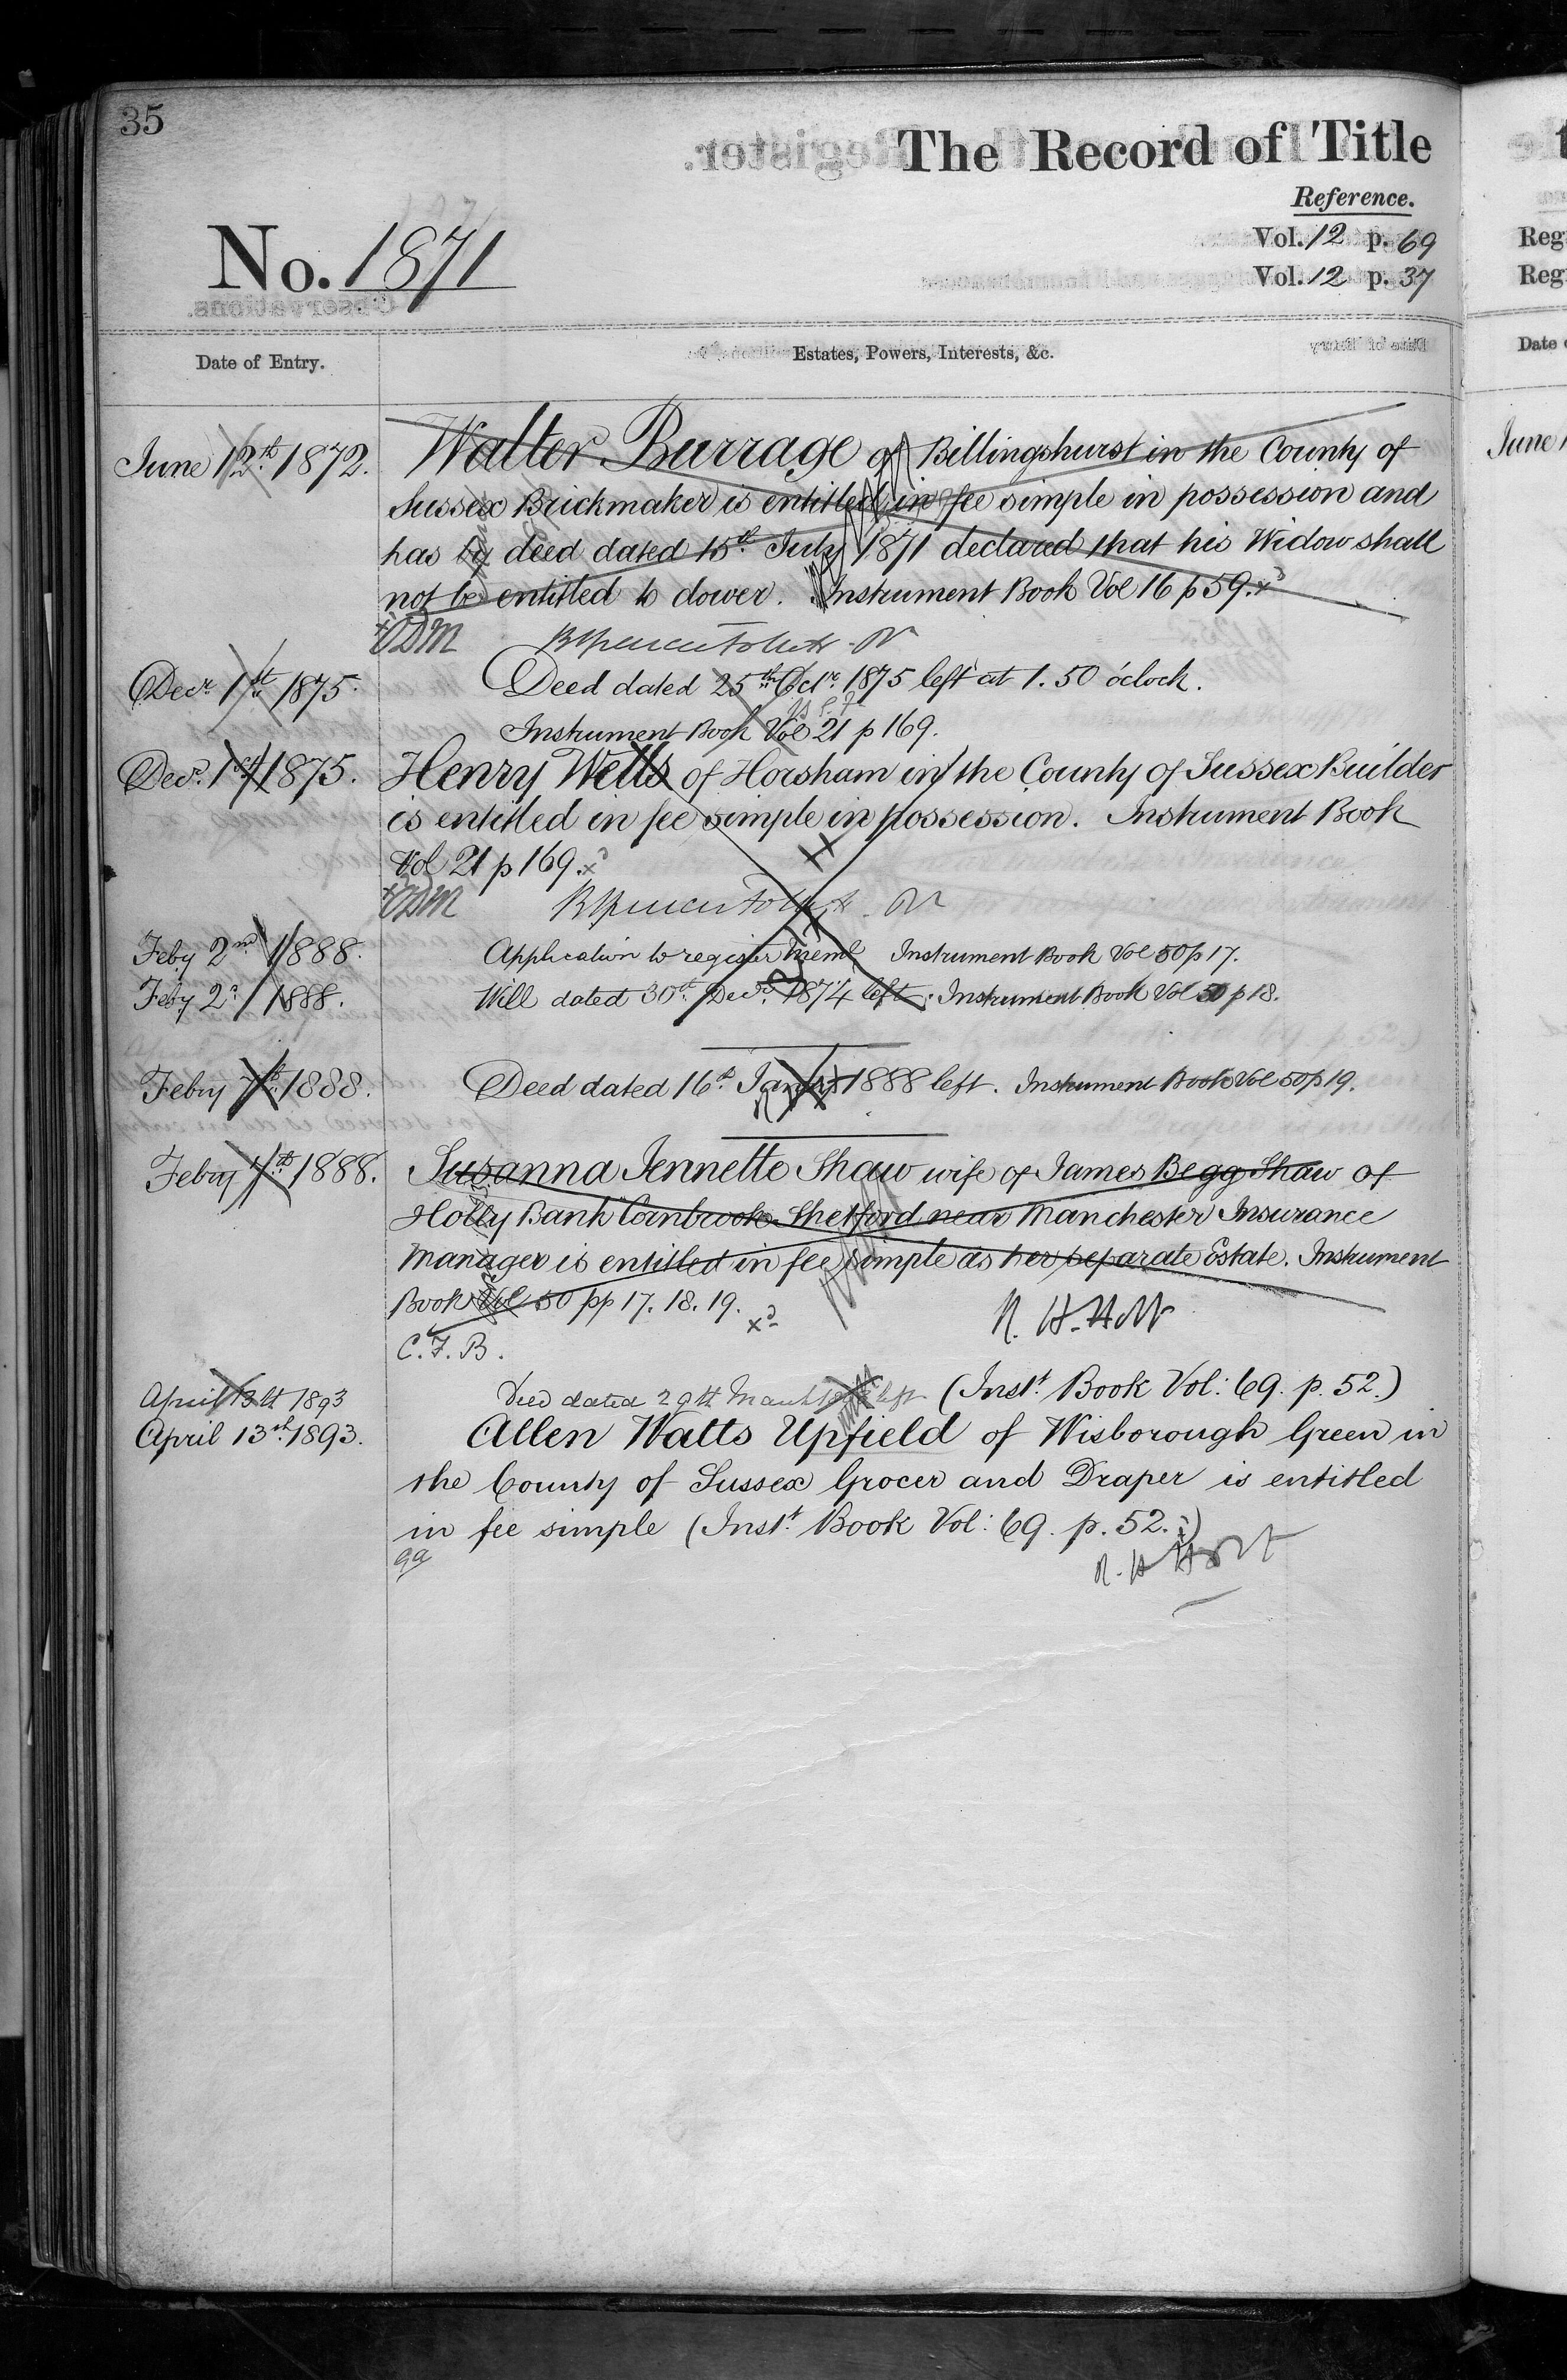 35
The Record of Title
Reference.
No. 1871
Vol. 12 p. 69
Vol. 12 p. 37
Date of Entry.
Estates, Powers, Interests, &c.
June 12th 1872.
Walter Burrage of Billingshurst in the County of
Sussex Brickmaker is entitled in fee simple in possession and
has by deed dated 15th July 1871 declared that his Widow shall
not be entitled to dower. Instrument Book Vol 16 p 59.
Decr 1st 1875.
Deed dated 25th Octr 1875 left at 1.50 o'clock.
Instrument Book Vol 21 p 169.
Decr 1st 1875.
Henry Wells of Horsham in the County of Sussex Builder
is entitled in fee simple in possession. Instrument Book
Vol 21 p 169.
Feby 2nd 1888.
Application to register Instrument Book Vol 50 p 17.
Feby 2d 1888.
Will dated 30th Decr 1874 left. Instrument Book Vol 50 p 18.
Febry 7th 1888.
Deed dated 16th Jany 1888 left. Instrument Book Vol 50 p 19.
Febry 7th 1888.
Susanna Jennette Shaw wife of James Begg Shaw of
Holly Bank Cornbrook Stretford near Manchester Insurance
Manager is entitled in fee simple as her separate Estate. Instrument
Book Vol 50 pp 17. 18. 19.
R. H. Holt
C. F. B.
April 13th 1893
Deed dated 29th March left (Inst. Book Vol: 69. p. 52.)
April 13th 1893.
Allen Watts Upfield of Wisborough Green in
the County of Sussex Grocer and Draper is entitled
in fee simple (Inst. Book Vol: 69. p. 52.)
R. H Holt
Reg
Reg
Date
June 1